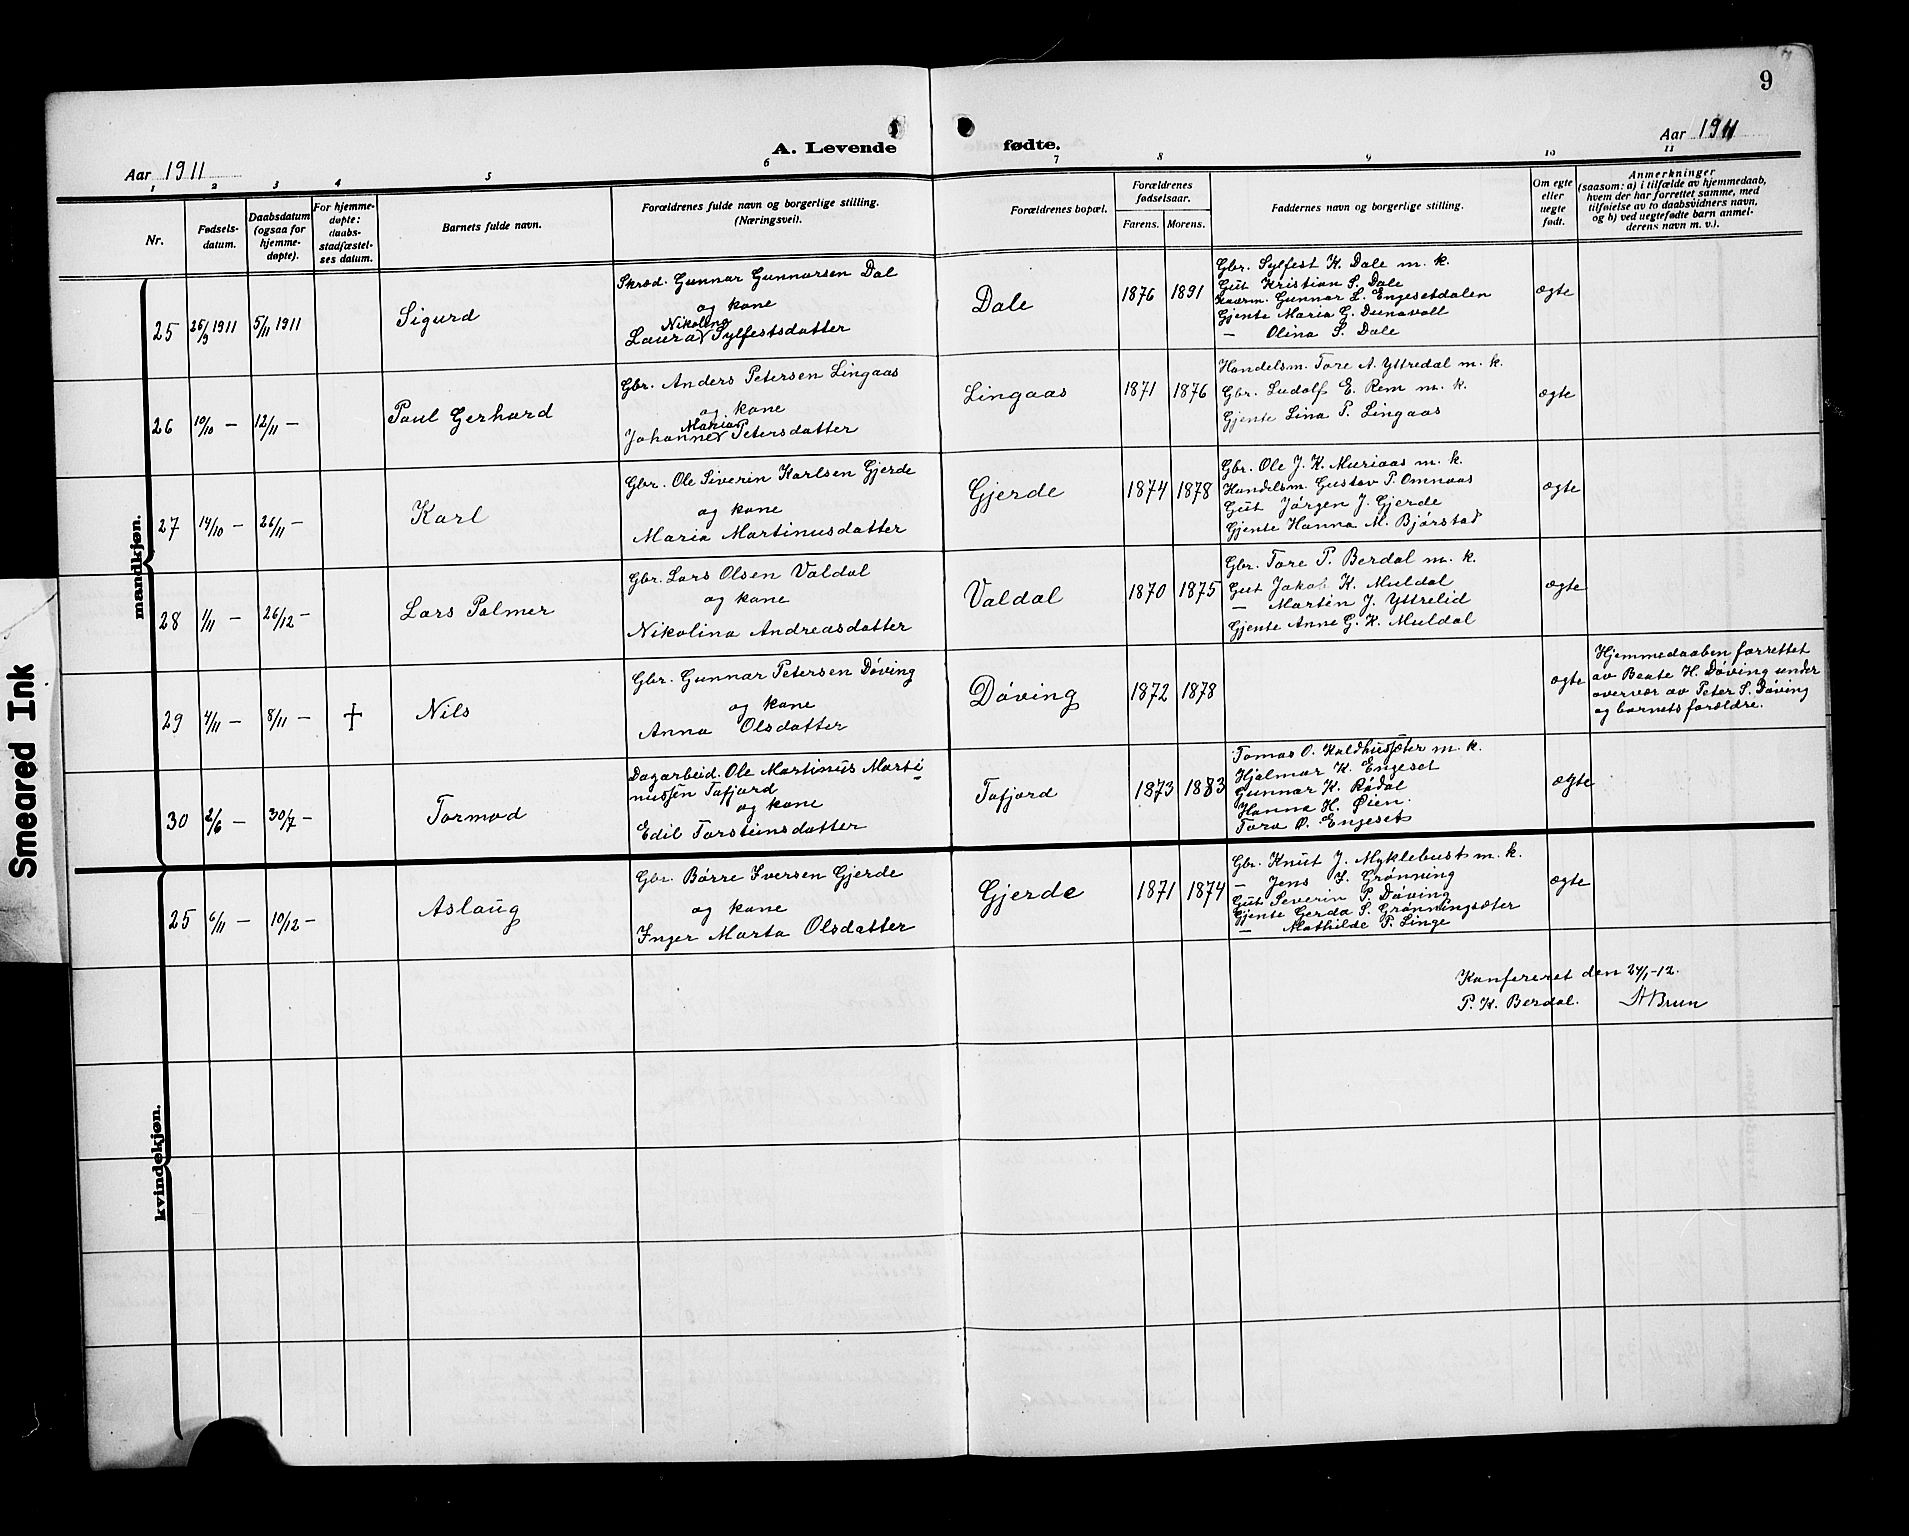 9
A. Levende fødte.
Aar 1911
Aar 1911
1 2 3 4 5 6 7 8 9 10 11
Nr.
Fødsels-
datum.
Daabsdatum
(ogsaa for
hjemme-
døpte).
For hjemme-
døpte:
daabs-
stadfæstel-
ses datum.
Barnets fulde navn.
Forældrenes fulde navn og borgerlige stilling.
(Næringsvei).
Forældrenes bopæl.
Forældrenes
fødselsaar.
Farens. Morens.
Faddernes navn og borgerlige stilling.
Om egte
eller
uegte
født.
Anmerkninger
(saasom: a) i tilfælde av hjemmedaab,
hvem der har forrettet samme, med
tilføielse av to daabsvidners navn,
og b) ved uegtefødte barn anmel-
derens navn m. v.).
mandkjøn.
25 26/9 1911 5/11 1911 Sigurd
Skræd. Gunnar Gunnarsen Dal
og kone
Nikolina
Laura Sylfestsdatter
Dale 1876 1891
Gbr. Sylfest K. Dale m. k.
Gut Kristian S. Dale
Gunnar L. Engesetdalen
Gjente Maria G. Dunavoll
— Olina S. Dale
ægte
26 10/10 — 12/11 — Paul Gerhard
Gbr. Anders Petersen Lingaas
og kone
Maria
Johanne Petersdatter
Lingaas 1871 1876
Handelsm. Tore A. Yttredal m. k.
Gbr. Ludolf E. Rem m. k.
Gjente Lina P. Lingaas
ægte
27 14/10 — 26/11 — Karl
Gbr. Ole Siverin Karlsen Gjerde
og kone
Maria Martinusdatter
Gjerde 1874 1878
Gbr. Ole J. K. Muriaas m. k.
Handelsm. Gustav P. Omnaas
Gut Jørgen J. Gjerde
Gjente Hanna M. Bjørstad
ægte
28 1/11 — 26/12 — Lars Palmer
Gbr. Lars Olsen Valdal
og kone
Nikolina Andreasdatter
Valdal 1870 1875
Gbr. Tore P. Berdal m. k.
Gut Jakob K. Muldal
— Martin J. Yttrelid
Gjente Anne G. K. Muldal
ægte
29 4/11 — 8/11 — † Nils
Gbr. Gunnar Petersen Døving
og kone
Anna Olsdatter
Døving 1872 1878
ægte
Hjemmedaaben forrettet
av Beate H. Døving under
overvær av Peter S. Døving
og barnets forældre.
30 2/6 — 30/7 — Tormod
Dagarbeid. Ole Martinus Marti-
nussen Tafjord
og kone
Edil Torsteinsdatter
Tafjord 1873 1883
Tomas O. Kaldhussæter m. k.
Hjalmar K. Engeset
Gunnar K. Rødal
Hanna H. Øien.
Tora O. Engeset
ægte
kvindekjøn.
25 6/11 — 10/12 — Aslaug
Gbr. Børre Iversen Gjerde
og kone
Inger Marta Olsdatter
Gjerde 1871 1874
Gbr. Knut J. Myklebust m. k.
— Jens I. Grønning
Gut Severin P. Døving
Gjente Gerda S. Grønningsæter
— Mathilde P. Linge
ægte
Konfereret den 24/1-12.
P. K. Berdal. A Brun
Smeared Ink